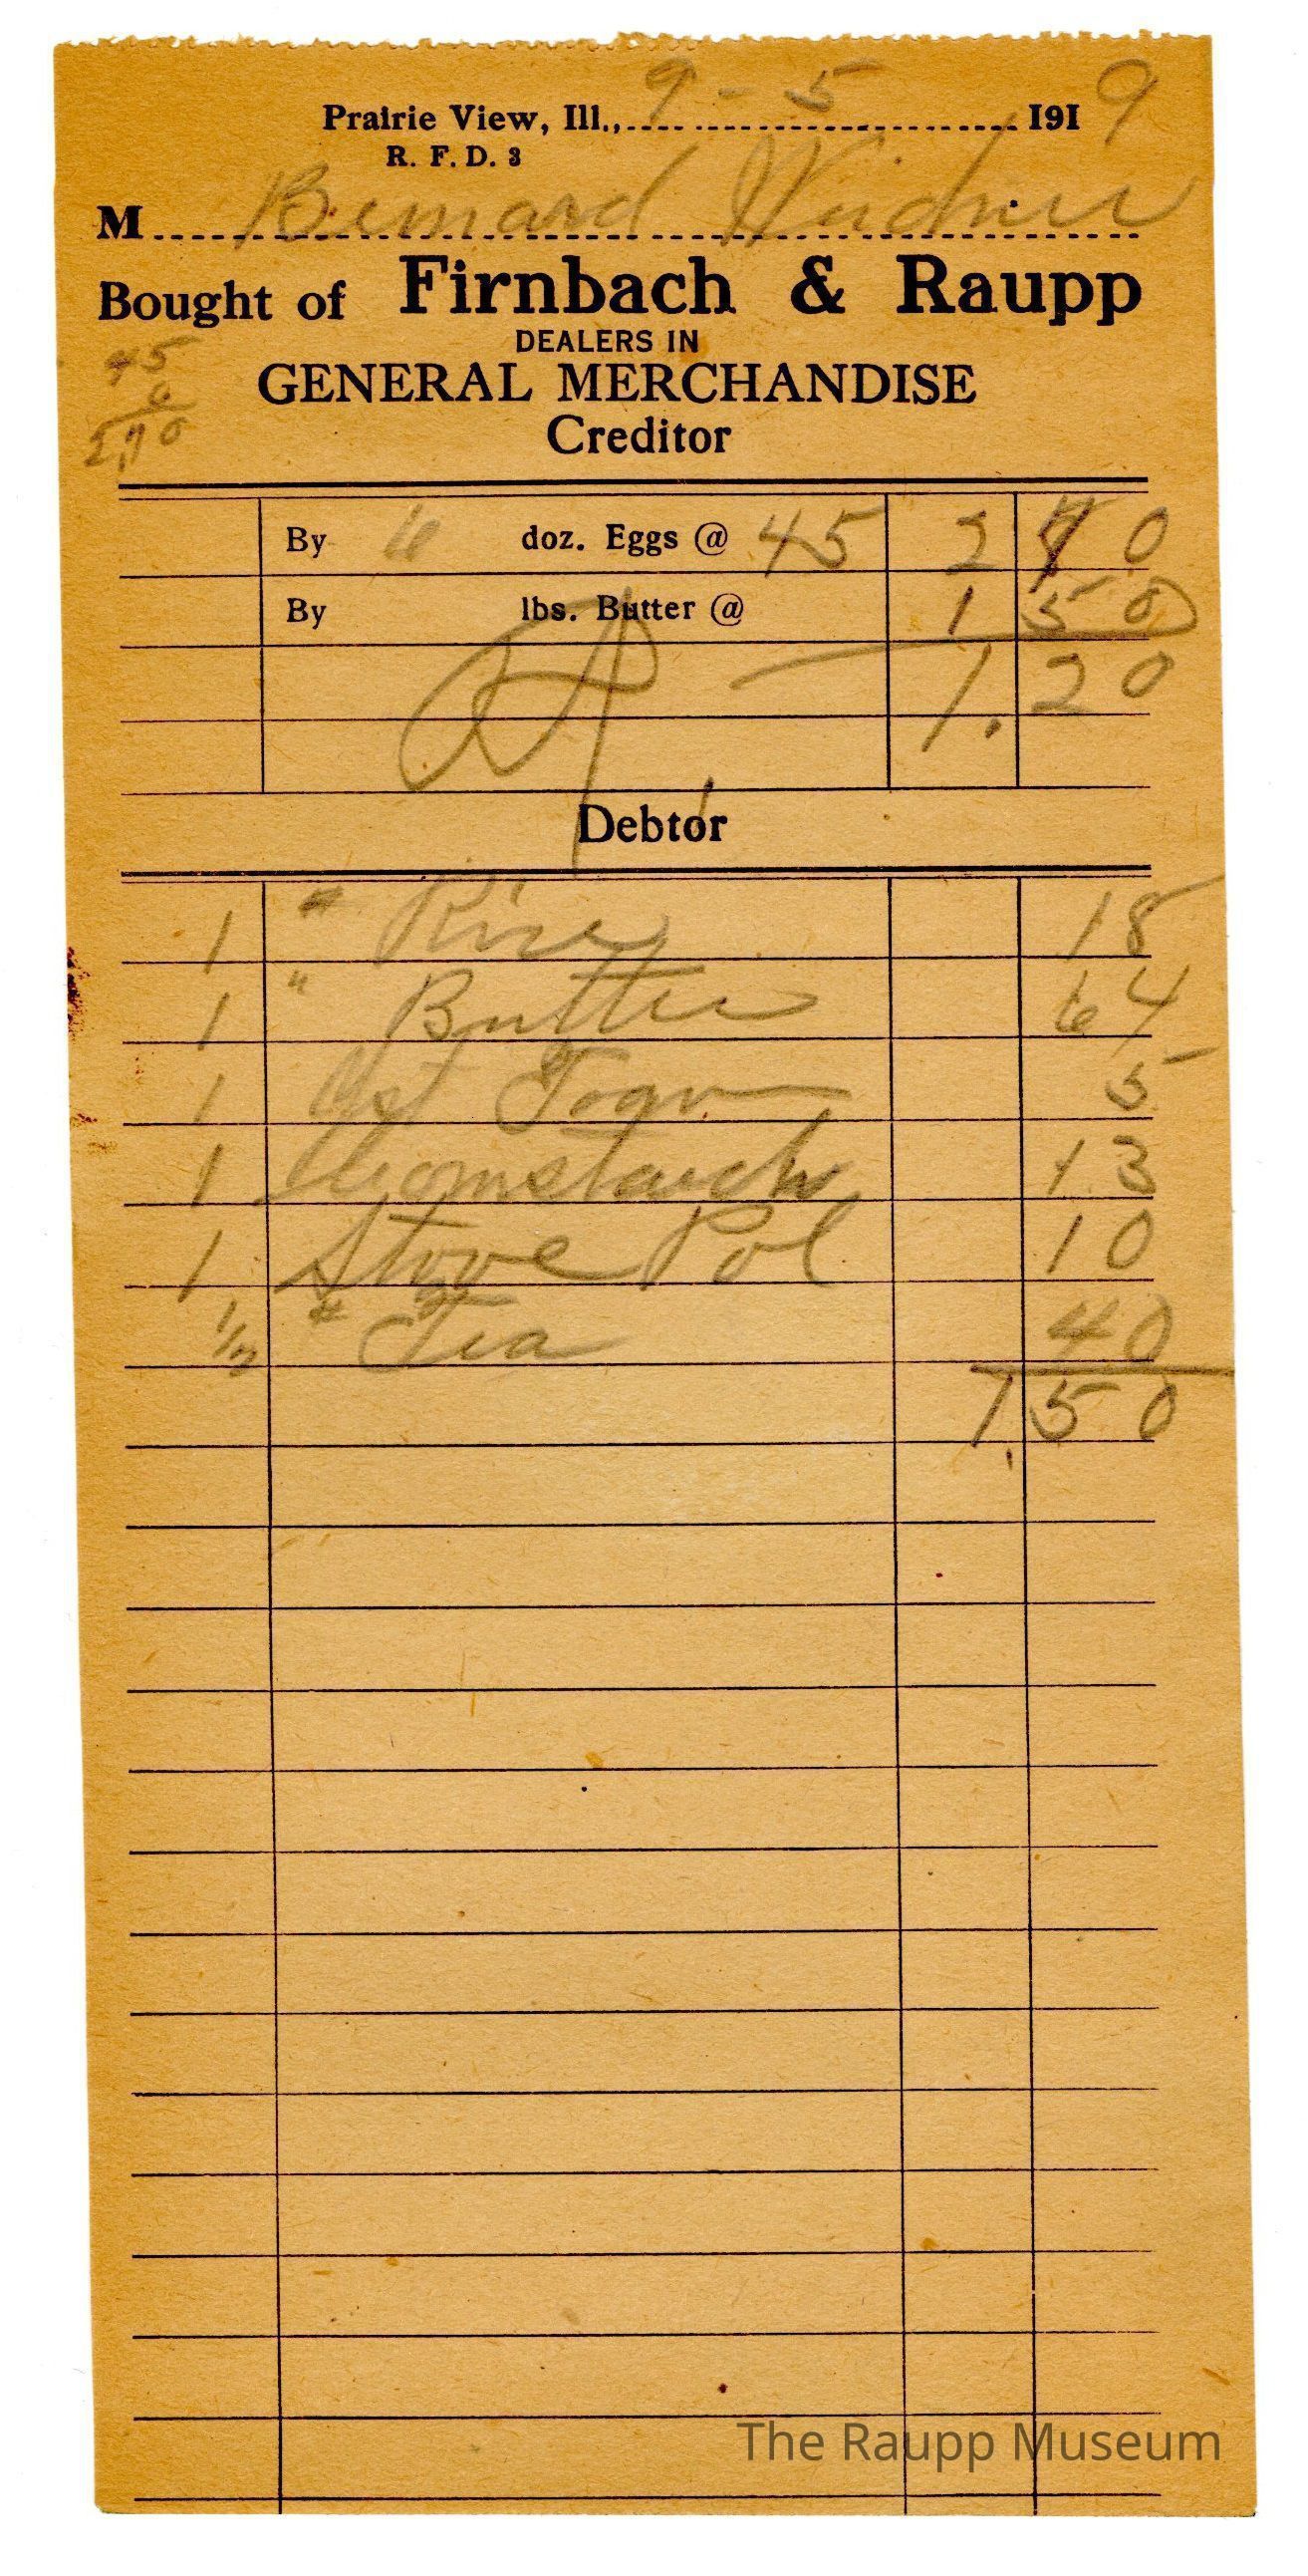 Prairie View, Ill., 9 - 5 1919
R. F. D. 3
M Bernard Weidner
Bought of Firnbach & Raupp
DEALERS IN
GENERAL MERCHANDISE
Creditor
45
6
2,70
By 6 doz. Eggs @ 45 2 70
By lbs. Butter @ 1 50
1.20
Debtor
1 # Rice 18
1 " Butter 64
1 Yeast Foam 5
1 Cornstarch 13
1 Stove Pol 10
1/2 # Tea 40
1,50
The Raupp Museum